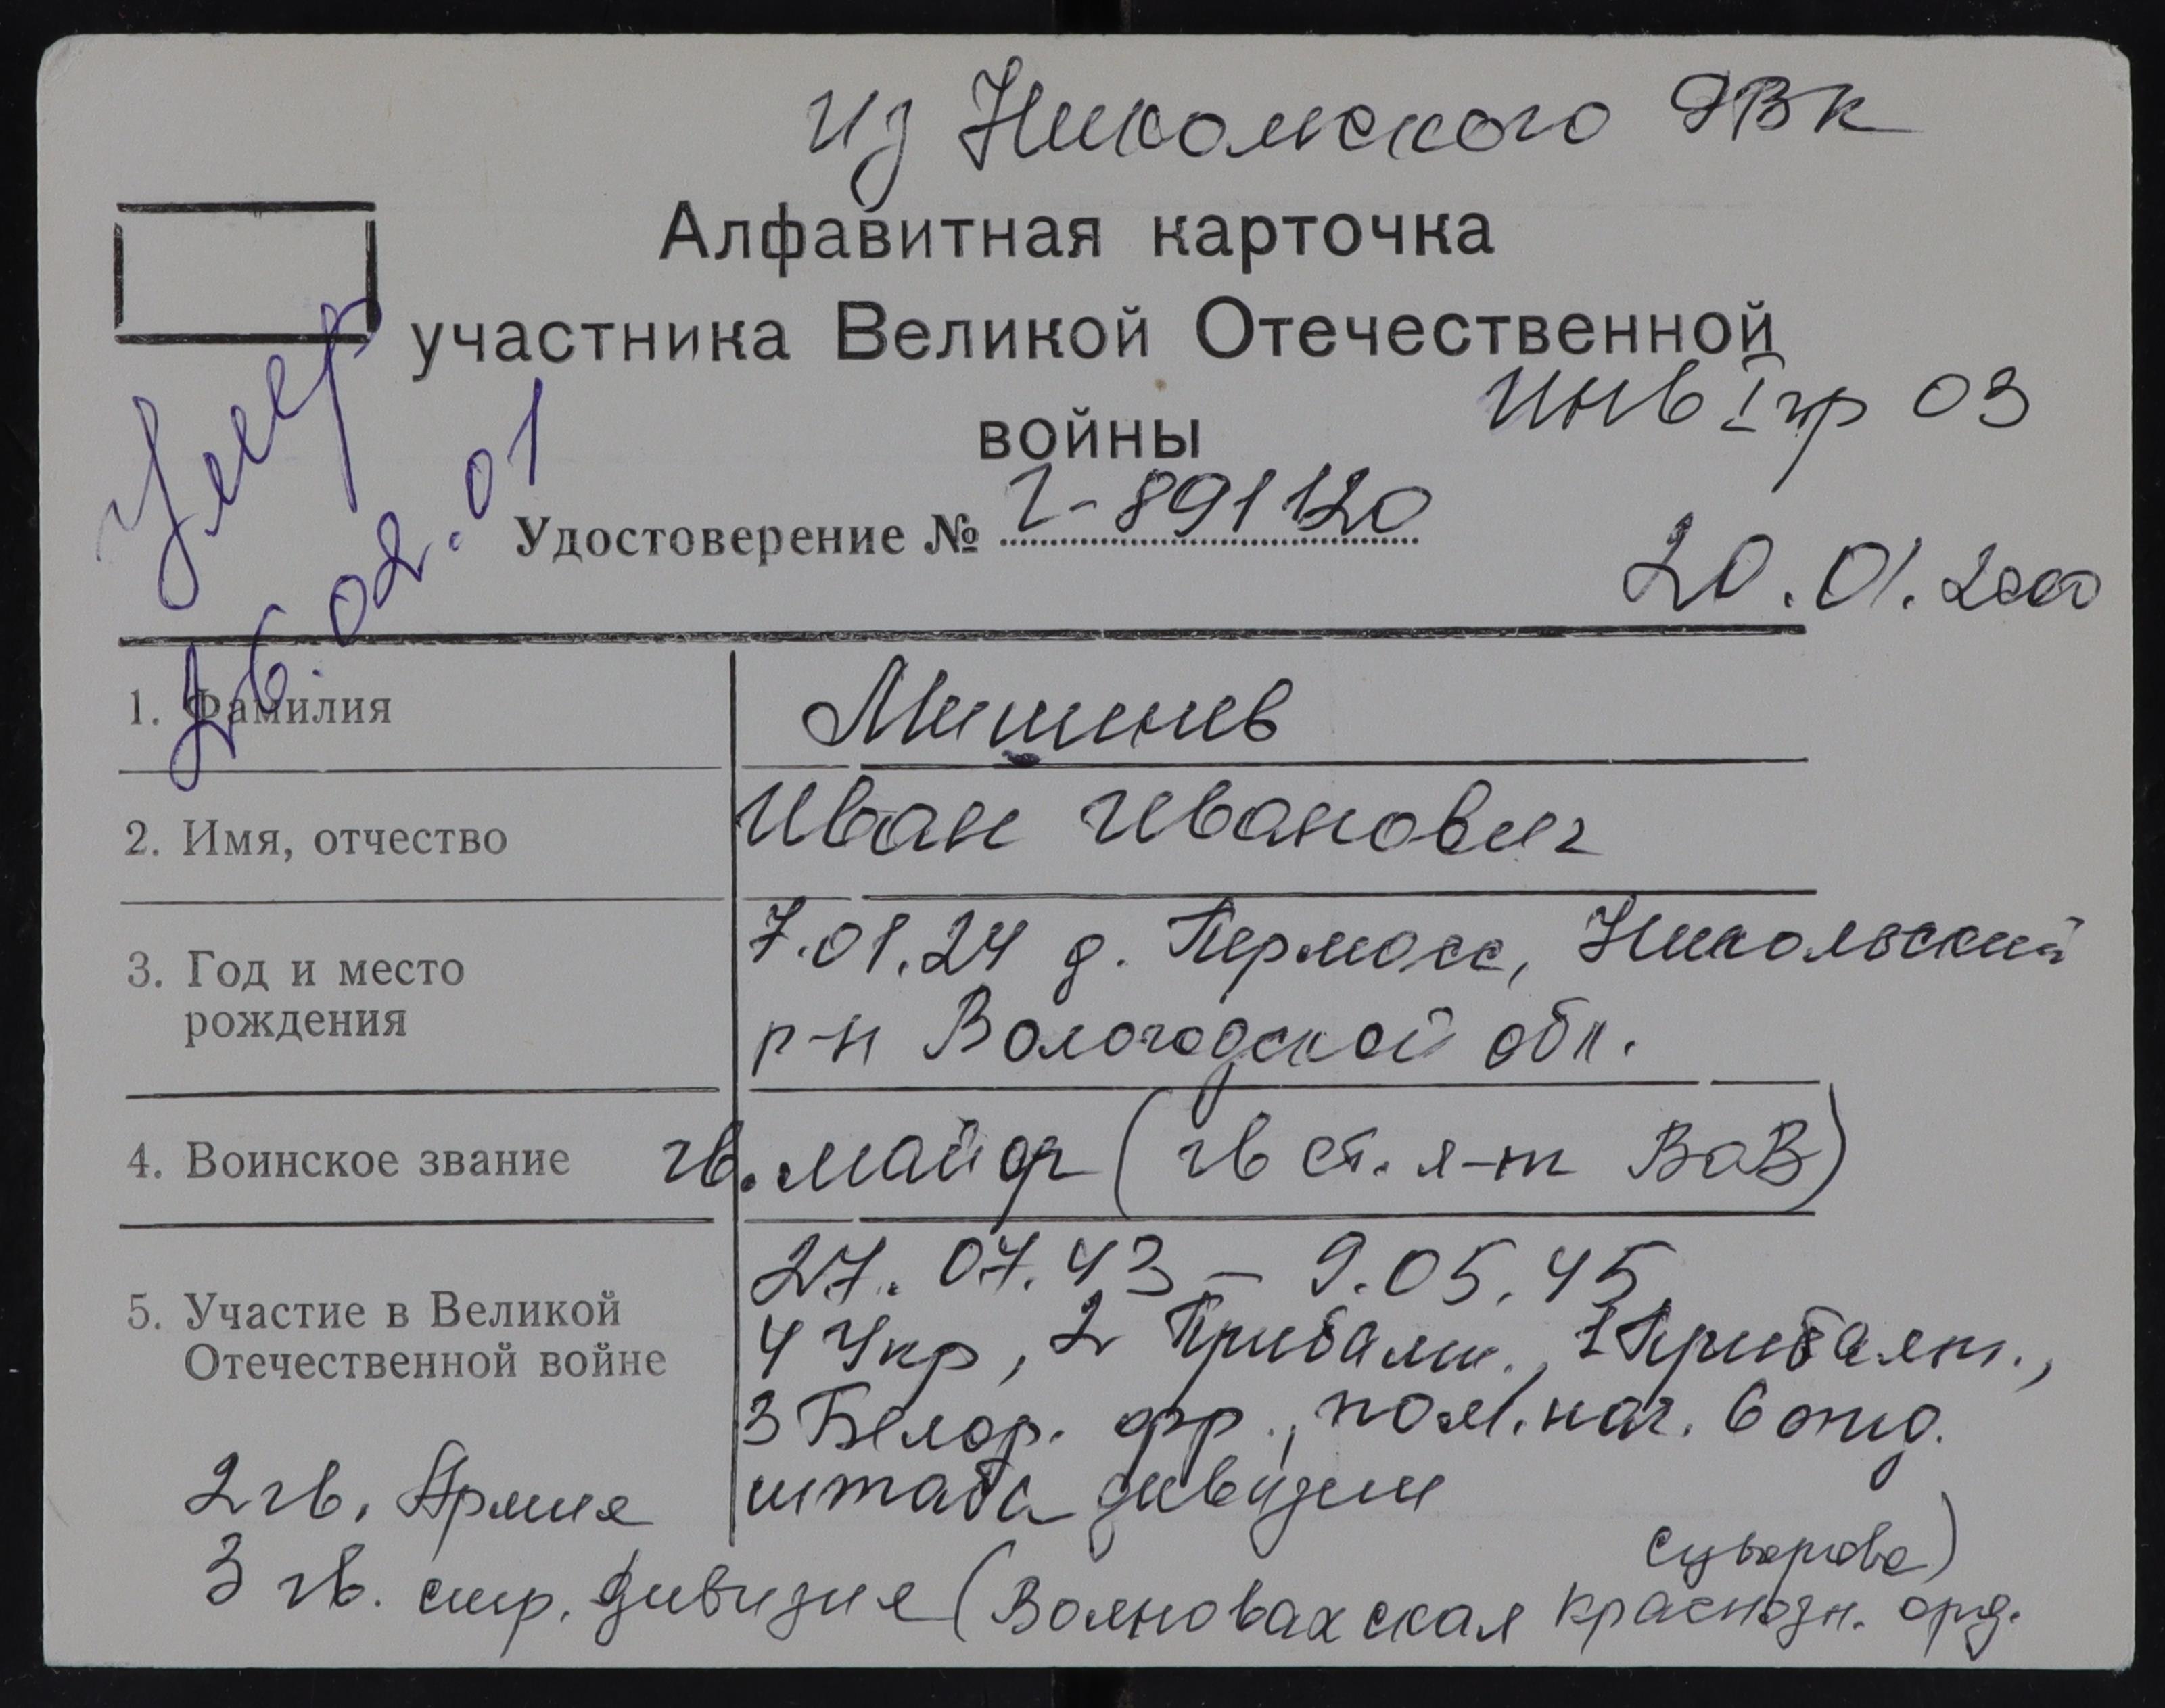 из Никольского РВК
Алфавитная карточка
участника Великой Отечественной
войны
инв I гр ОЗ
Удостоверение № Г-891120
20.01.2000
Умер
26.02.01
1. Фамилия
Мишнев
2. Имя, отчество
Иван Иванович
3. Год и место
рождения
7.01.24 д. Пермасс, Никольский
р-н Вологодской обл.
4. Воинское звание
гв. майор (гв ст. л-т ВоВ)
5. Участие в Великой
Отечественной войне
27.07.43 – 9.05.45
4 Укр, 2 Прибалт., 1 Прибалт.,
3 Белор. фр., пом. нач. 6 отд.
штаба дивизии
2 гв. Армия
3 гв. стр. дивизия (Волновахская краснозн. орд.
Суворова)